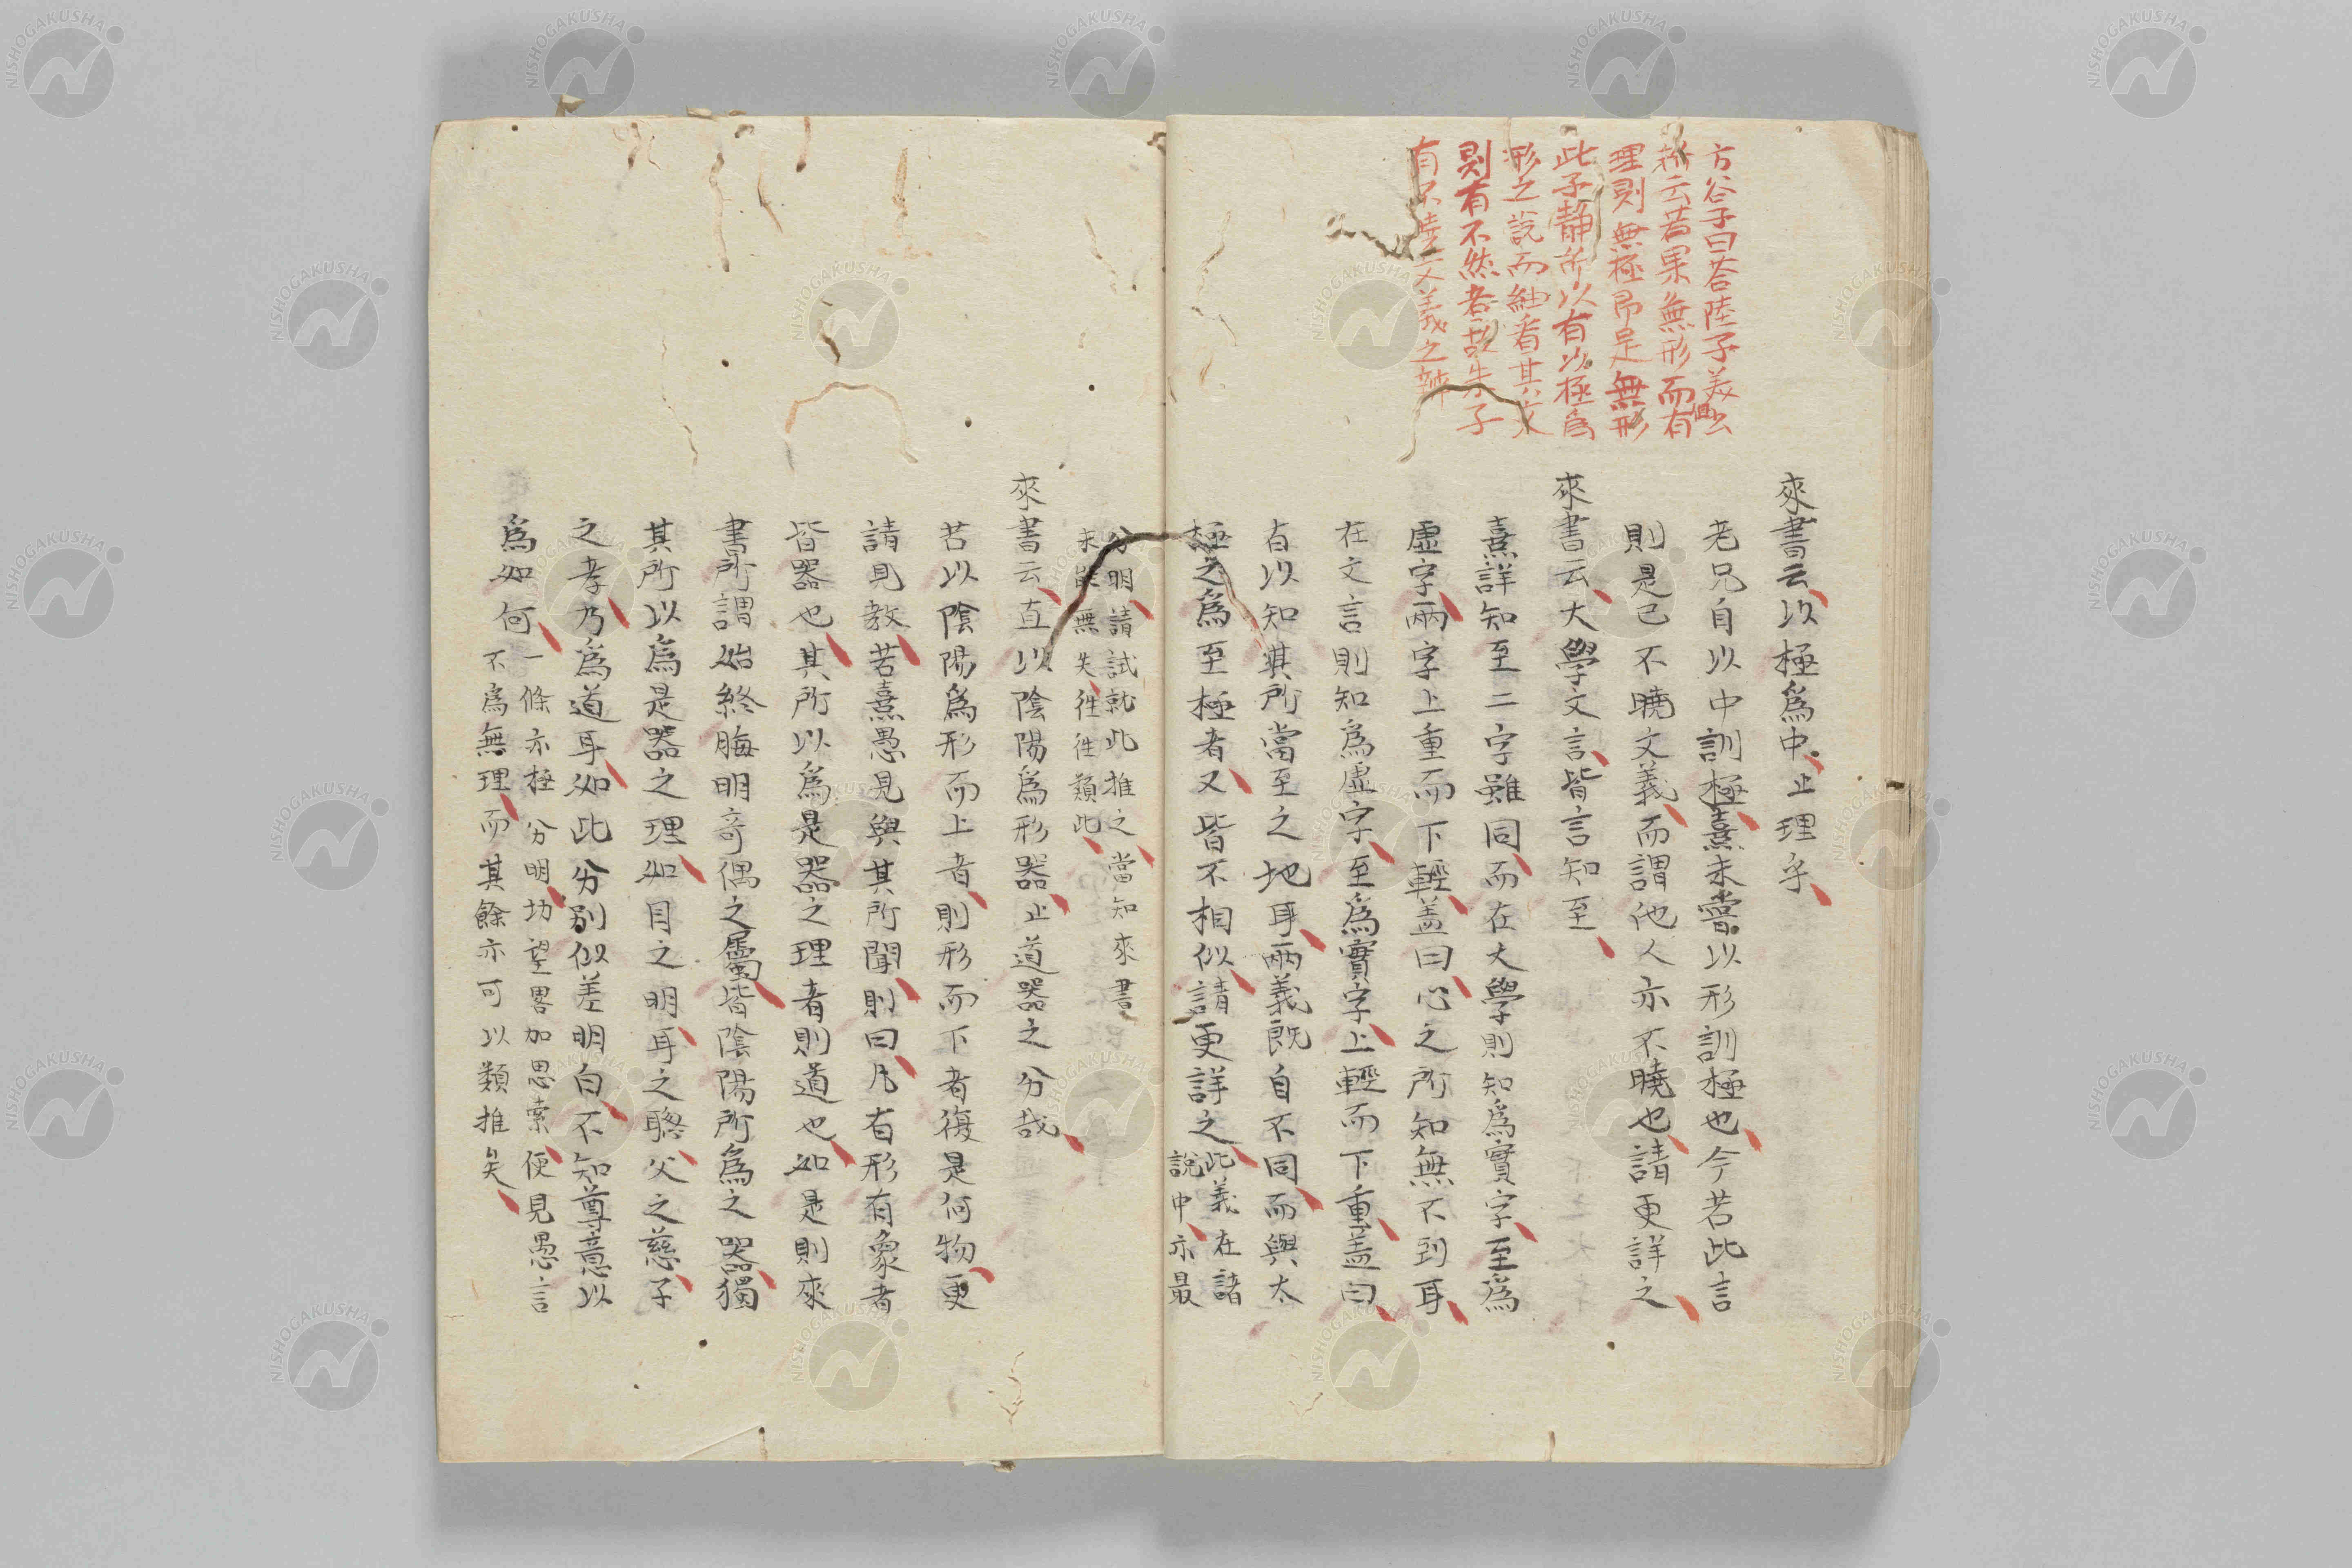 方谷子曰答陸子美
無云若果無形而有
理則無極即是無形
此子靜所以有以極爲
形之說而細看其文
則有不然者故朱子
有不曉文義之辨
來書云以極爲中止理乎
老兄自以中訓極熹未嘗以形訓極也今若此言
則是已不曉文義而謂他人亦不曉也請更詳之
來書云大學文言皆言知至
熹詳知至二字雖同而在大學則知爲實字至爲
虛字兩字上重而下輕蓋曰心之所知無不到耳
在文言則知爲虛字至爲實字上輕而下重蓋曰
有以知其所當至之地耳兩義既自不同而與太
極之爲至極者又皆不相似請更詳之
此義在諸
說中亦最
分明請試就此推之當知來書
未能無失往往類此
來書云直以陰陽爲形器止道器之分哉
若以陰陽爲形而上者則形而下者復是何物更
請見教若熹愚見與其所聞則曰凡有形有象者
皆器也其所以爲是器之理者則道也如是則來
書所謂始終晦明奇偶之屬皆陰陽所爲之器獨
其所以爲是器之理如目之明耳之聰父之慈子
之孝乃爲道耳如此分別似差明白不知尊意以
爲如何
一條亦極分明切望畧加思索便見愚言
不爲無理而其餘亦可以類推矣
NISHOGAKUSHA